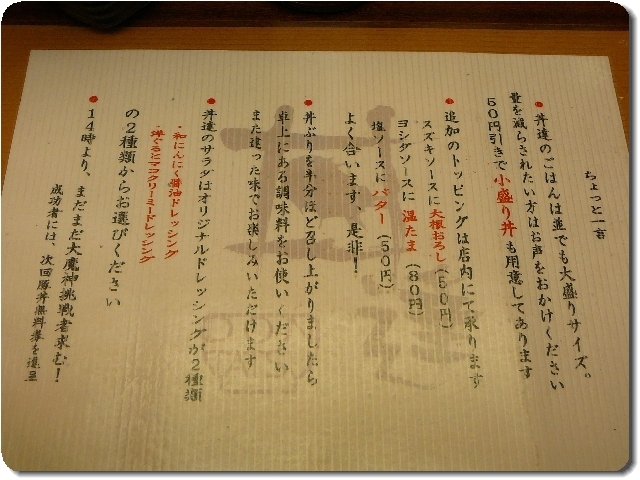 ちょっと一言
●丼達のごはんは並でも大盛りサイズ。
量を減らされたい方はお声をおかけください
50円引きで小盛り丼も用意してあります
●追加のトッピングは店内にて承ります
スズキソースに大根おろし(50円)
ヨシダソースに温たま(80円)
塩ソースにバター(50円)
よく合います、是非!
●丼ぶりを半分ほど召し上がりましたら
卓上にある調味料をお使いください
また違った味でお楽しみいただけます
●丼達のサラダはオリジナルドレッシングが2種類
・和にんにく醤油ドレッシング
・洋ぐるとマコクリーミードレッシング
の2種類からお選びください
●14時より、まだまだ大魔神挑戦者求む!
成功者には、次回豚丼無料券を進呈